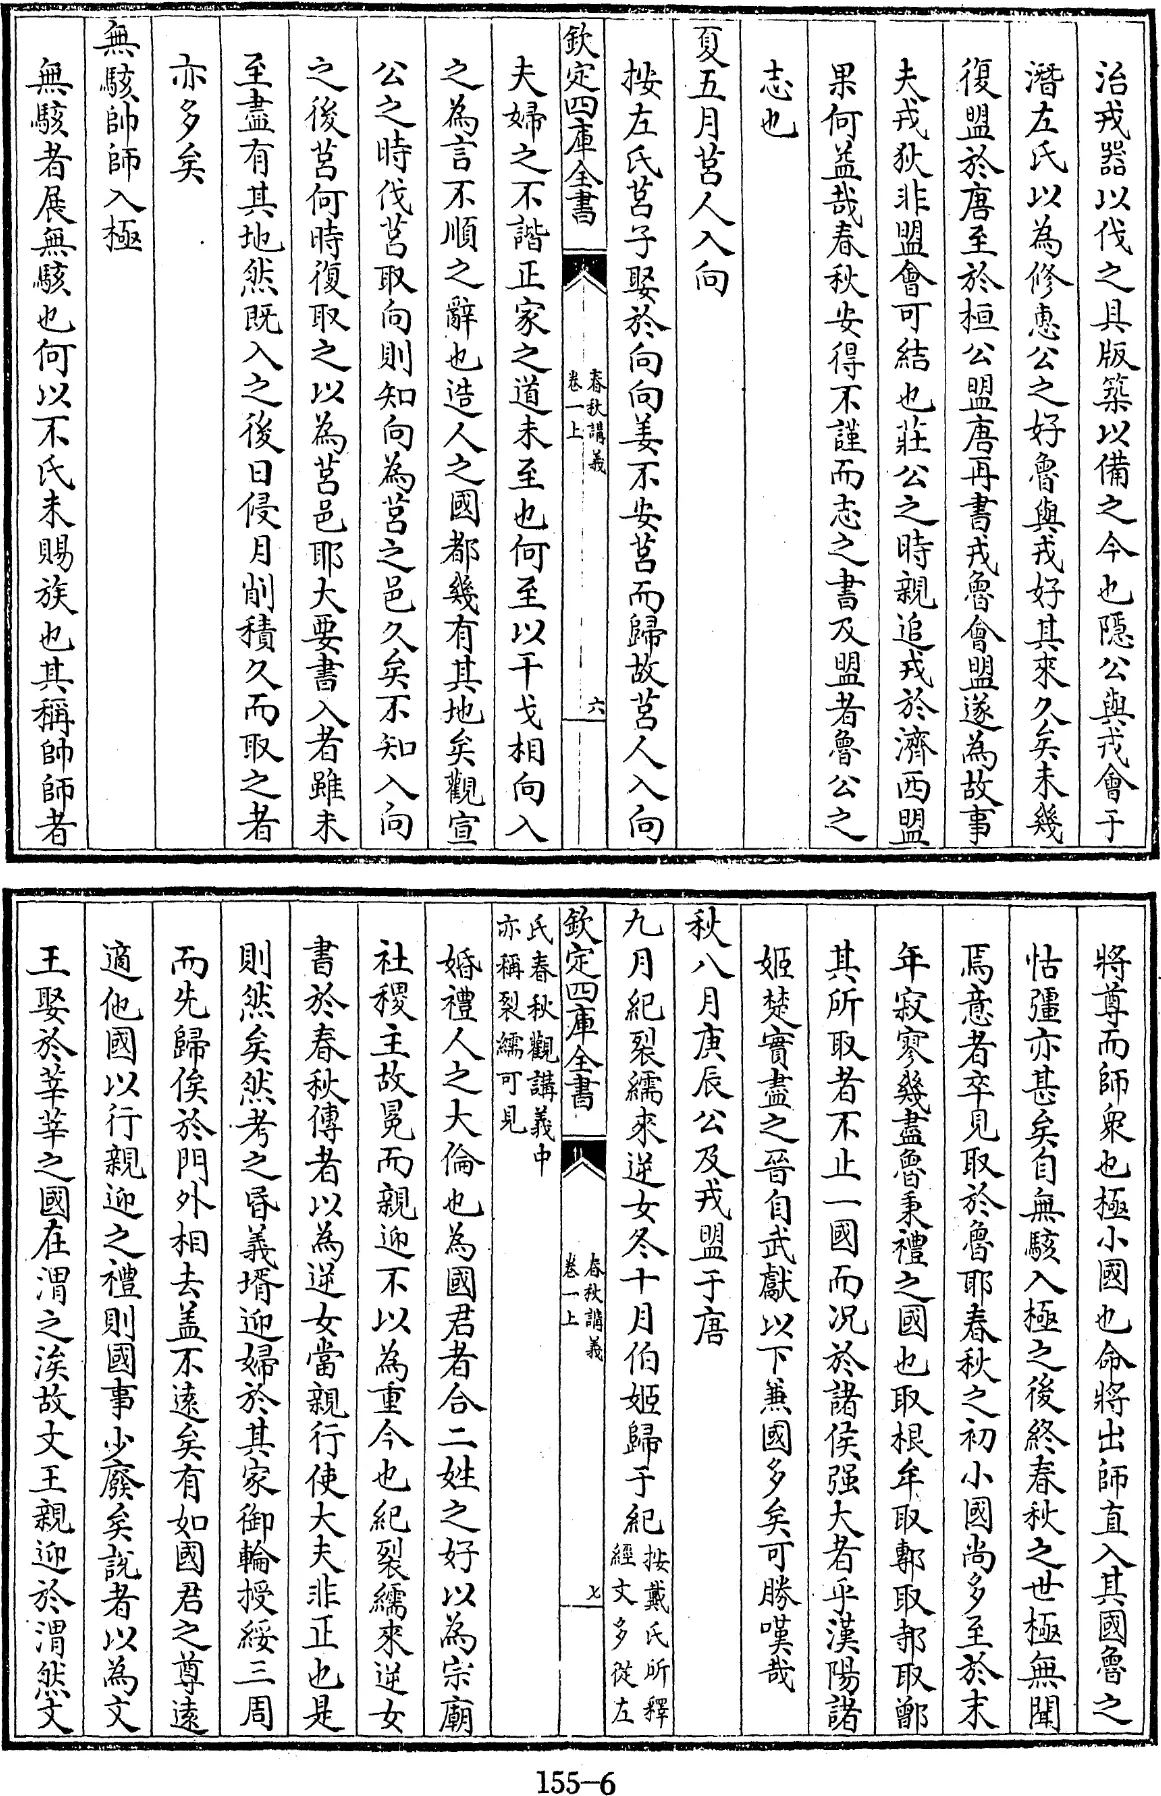 治戎器以伐之具版築以備之今也隱公與戎會于
潛左氏以為修惠公之好魯與戎好其來久矣未幾
復盟於唐至於桓公盟唐再書戎魯會盟遂為故事
夫戎狄非盟會可結也莊公之時親追戎於濟西盟
果何益哉春秋安得不謹而志之書及盟者魯公之
志也
夏五月莒人入向
按左氏莒子娶於向向姜不安莒而歸故莒人入向
欽定四庫全書
春秋講義
卷一上
六
夫婦之不諧正家之道未至也何至以干戈相向入
之為言不順之辭也造人之國都幾有其地矣觀宣
公之時伐莒取向則知向為莒之邑久矣不知入向
之後莒何時復取之以為莒邑耶大要書入者雖未
至盡有其地然既入之後日侵月削積久而取之者
亦多矣
無駭帥師入極
無駭者展無駭也何以不氏未賜族也其稱帥師者
將尊而師衆也極小國也命將出師直入其國魯之
怙彊亦甚矣自無駭入極之後終春秋之世極無聞
焉意者卒見取於魯耶春秋之初小國尚多至於末
年寂寥幾盡魯秉禮之國也取根牟取鄟取邿取鄫
其所取者不止一國而况於諸侯强大者乎漢陽諸
姬楚實盡之晉自武獻以下兼國多矣可勝嘆哉
秋八月庚辰公及戎盟于唐
九月紀裂繻來逆女冬十月伯姬歸于紀按戴氏所釋
經文多從左
欽定四庫全書
春秋講義
卷一上
七
氏春秋觀講義中
亦稱裂繻可見
婚禮人之大倫也為國君者合二姓之好以為宗廟
社稷主故冕而親迎不以為重今也紀裂繻來逆女
書於春秋傳者以為逆女當親行使大夫非正也是
則然矣然考之昏義壻迎婦於其家御輪授綏三周
而先歸俟於門外相去盖不遠矣有如國君之尊遠
適他國以行親迎之禮則國事少廢矣說者以為文
王娶於莘莘之國在渭之涘故文王親迎於渭然文
155-6